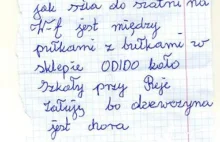 jak szła do szatni na
W-f jest między
półkami z bułkami w
sklepie ODIDO koło
szkoły przy Reje
żałuję bo dziewczyna
jest chora